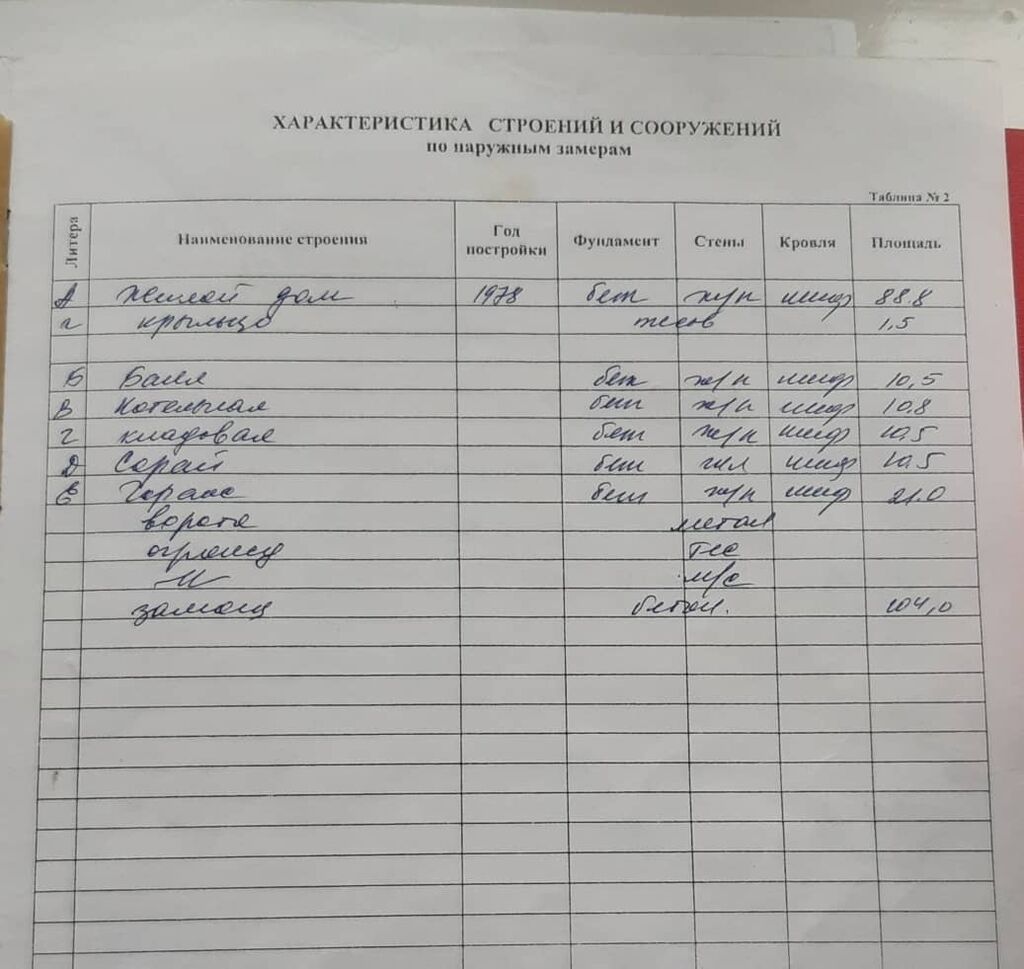 ХАРАКТЕРИСТИКА СТРОЕНИЙ И СООРУЖЕНИЙ
по наружным замерам
Таблица № 2
Литера Наименование строения Год постройки Фундамент Стены Кровля Площадь
А Жилой дом 1978 бет ж/п шиф 88.8
г крыльцо тесов 1,5
Б Баня бет ж/п шиф 10,5
В Котельная бет ж/п шиф 10.8
Г кладовая бет ж/п шиф 10.5
Д Сарай бет шиф 10.5
Е Гараж бет ж/п шиф 21.0
ворота метал
огражд тес
-"- м/с
замощ бетон. 104,0